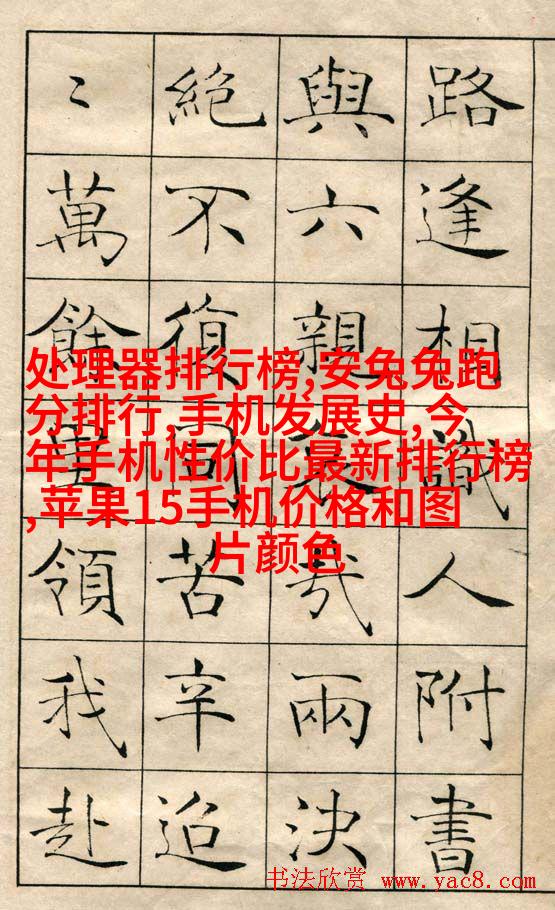 路逢相識人附書
與六親哀哉兩決
絕不復同苦辛迢
〻萬餘里領我赴
处理器排行榜,安兔兔跑
分排行,手机发展史,今
年手机性价比最新排行榜
,苹果15手机价格和图
片颜色
书法欣赏 www.yac8.com